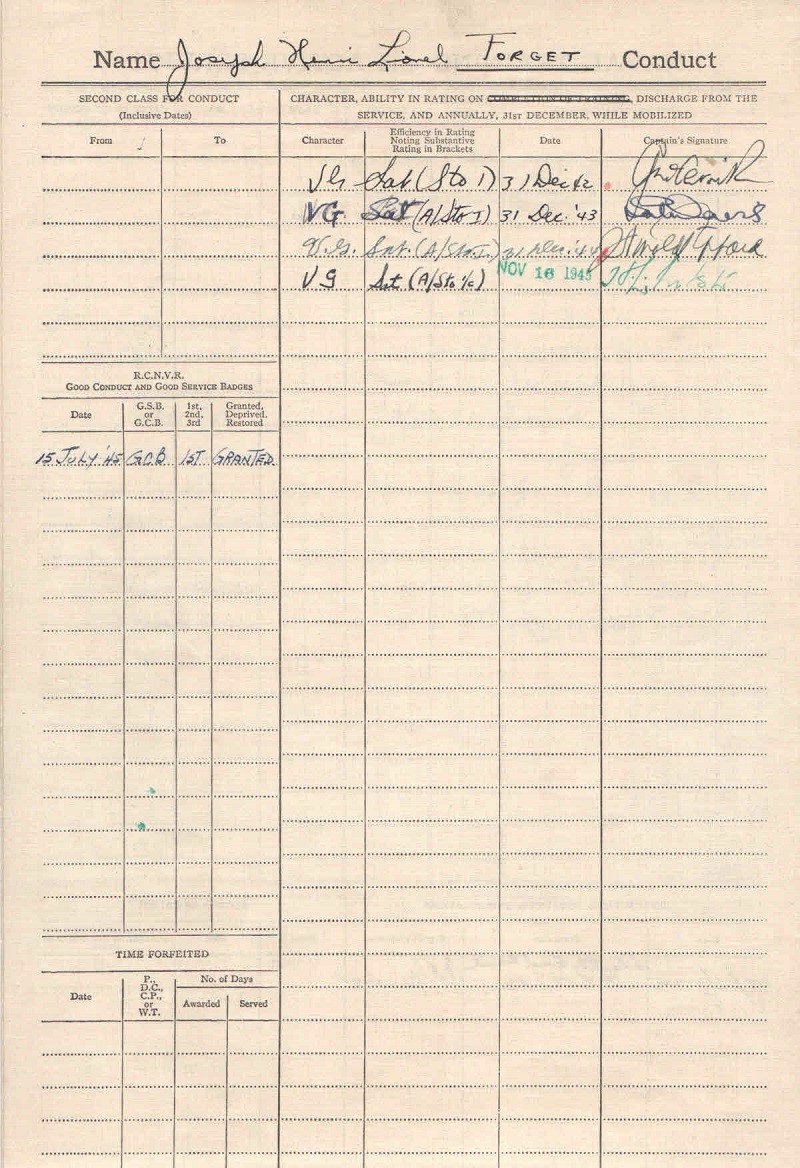 Name Joseph Henri Lionel FORGET Conduct
SECOND CLASS FOR CONDUCT
(Inclusive Dates)
From To
CHARACTER, ABILITY IN RATING ON COMPLETION OF TRAINING, DISCHARGE FROM THE
SERVICE, AND ANNUALLY, 31ST DECEMBER, WHILE MOBILIZED
Character
Efficiency in Rating
Noting Substantive
Rating in Brackets
Date
Captain's Signature
VG Sat (Sto I) 31 Dec 42
VG Sat (A/Sto I) 31 Dec. '43
V.G. Sat. (A/Sto. I.) 31 Dec. '44
VG Sat (A/Sto 1/c) NOV 16 1945
R.C.N.V.R.
GOOD CONDUCT AND GOOD SERVICE BADGES
Date
G.S.B.
or
G.C.B.
1st,
2nd,
3rd
Granted,
Deprived,
Restored
15 JULY '45 GCB 1ST GRANTED
TIME FORFEITED
Date
P.,
D.C.,
C.P.,
or
W.T.
No. of Days
Awarded Served